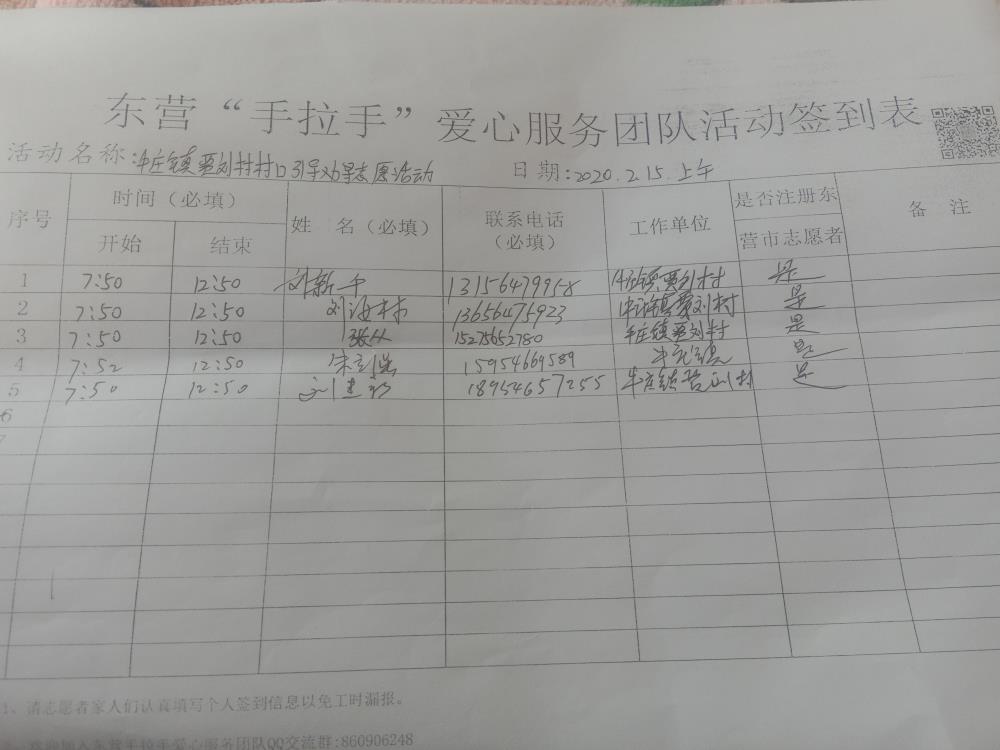 东营“手拉手”爱心服务团队活动签到表
活动名称:牛庄镇贾刘村村口引导劝导志愿活动 日期:2020.2.15.上午
序号 时间(必填) 姓 名(必填) 联系电话(必填) 工作单位 是否注册东营市志愿者 备 注
开始 结束
1 7:50 12:50 刘新 13156479958 牛庄镇贾刘村 是
2 7:50 12:50 刘海村 13656475923 牛庄镇贾刘村 是
3 7:50 12:50 15275652780 牛庄镇贾刘村 是
4 7:52 12:50 宋 15954669589 牛庄镇 是
5 7:50 12:50 刘建 18954657255 牛庄镇贾刘村 是
6
7
1、请志愿者家人们认真填写个人签到信息以免工时漏报。
欢迎加入东营手拉手爱心服务团队QQ交流群:860906248